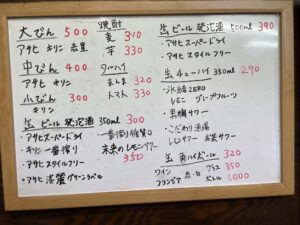 大びん 500
アサヒ キリン 赤星
中びん 400
アサヒ キリン
小びん 300
キリン
缶 ビール 発泡酒 350ml 300
・アサヒスーパードライ
・キリン一番搾り
・アサヒ スタイルフリー
・アサヒ 淡麗グリーンラベル
焼酎
麦 310
芋 330
タカハイ
330
トマト 330
・一番搾り 糖質0
未来のレモンサワー
350
缶 ビール 発泡酒 500ml 390
・アサヒ スーパードライ
・アサヒ スタイルフリー
缶 チューハイ 350ml 290
・氷結 ZERO
レモン グレープフルーツ
・男梅サワー
・こだわり酒場
レモンサワー お茶サワー
缶 角ハイボール 320
ワイン 赤・白 グラス 350
フランジア ボトル 1,000